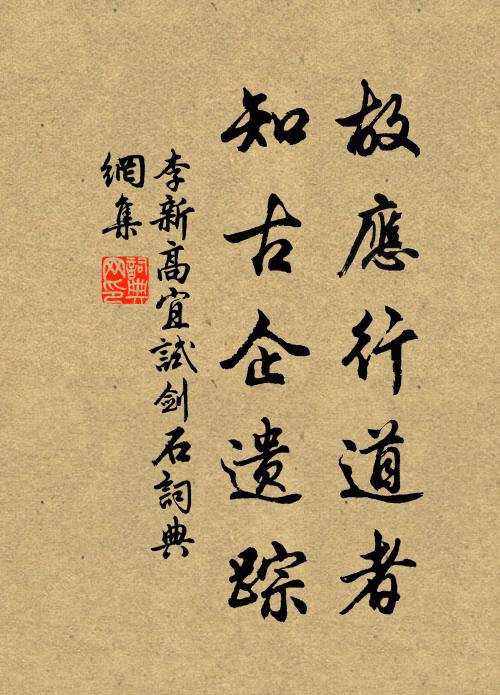 故應行道者
知古企遺踪
李新高宜試劍石詞典
網集
詞典
网印